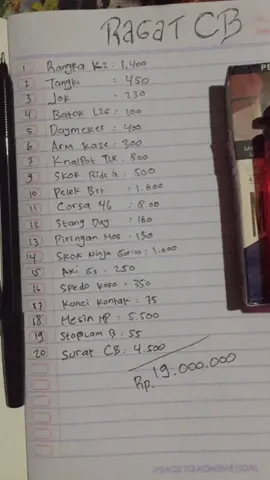 RAGAT CB
1 Rangka K2 : 1,400
2 Tangki : 450
3 Jok : 230
4 Batok L2G : 100
5 Daymeker : 400
6 Arm Kaze : 300
7 Knalpot TWR : 500
9 Skok Ride it : 500
10 Pelek Brt : 1.600
11 Corsa 46 : 8.00
12 Stang Day : 160
13 Piringan Mos : 130
14 Skok Ninja : 1.000
15 Aki Gs : 250
16 Spedo Koso : 350
17 Kunci Kontak : 75
18 Mesin MP : 5.500
19 Stoplam B : 55
20 Surat CB : 4.500
Rp. 19.000.000